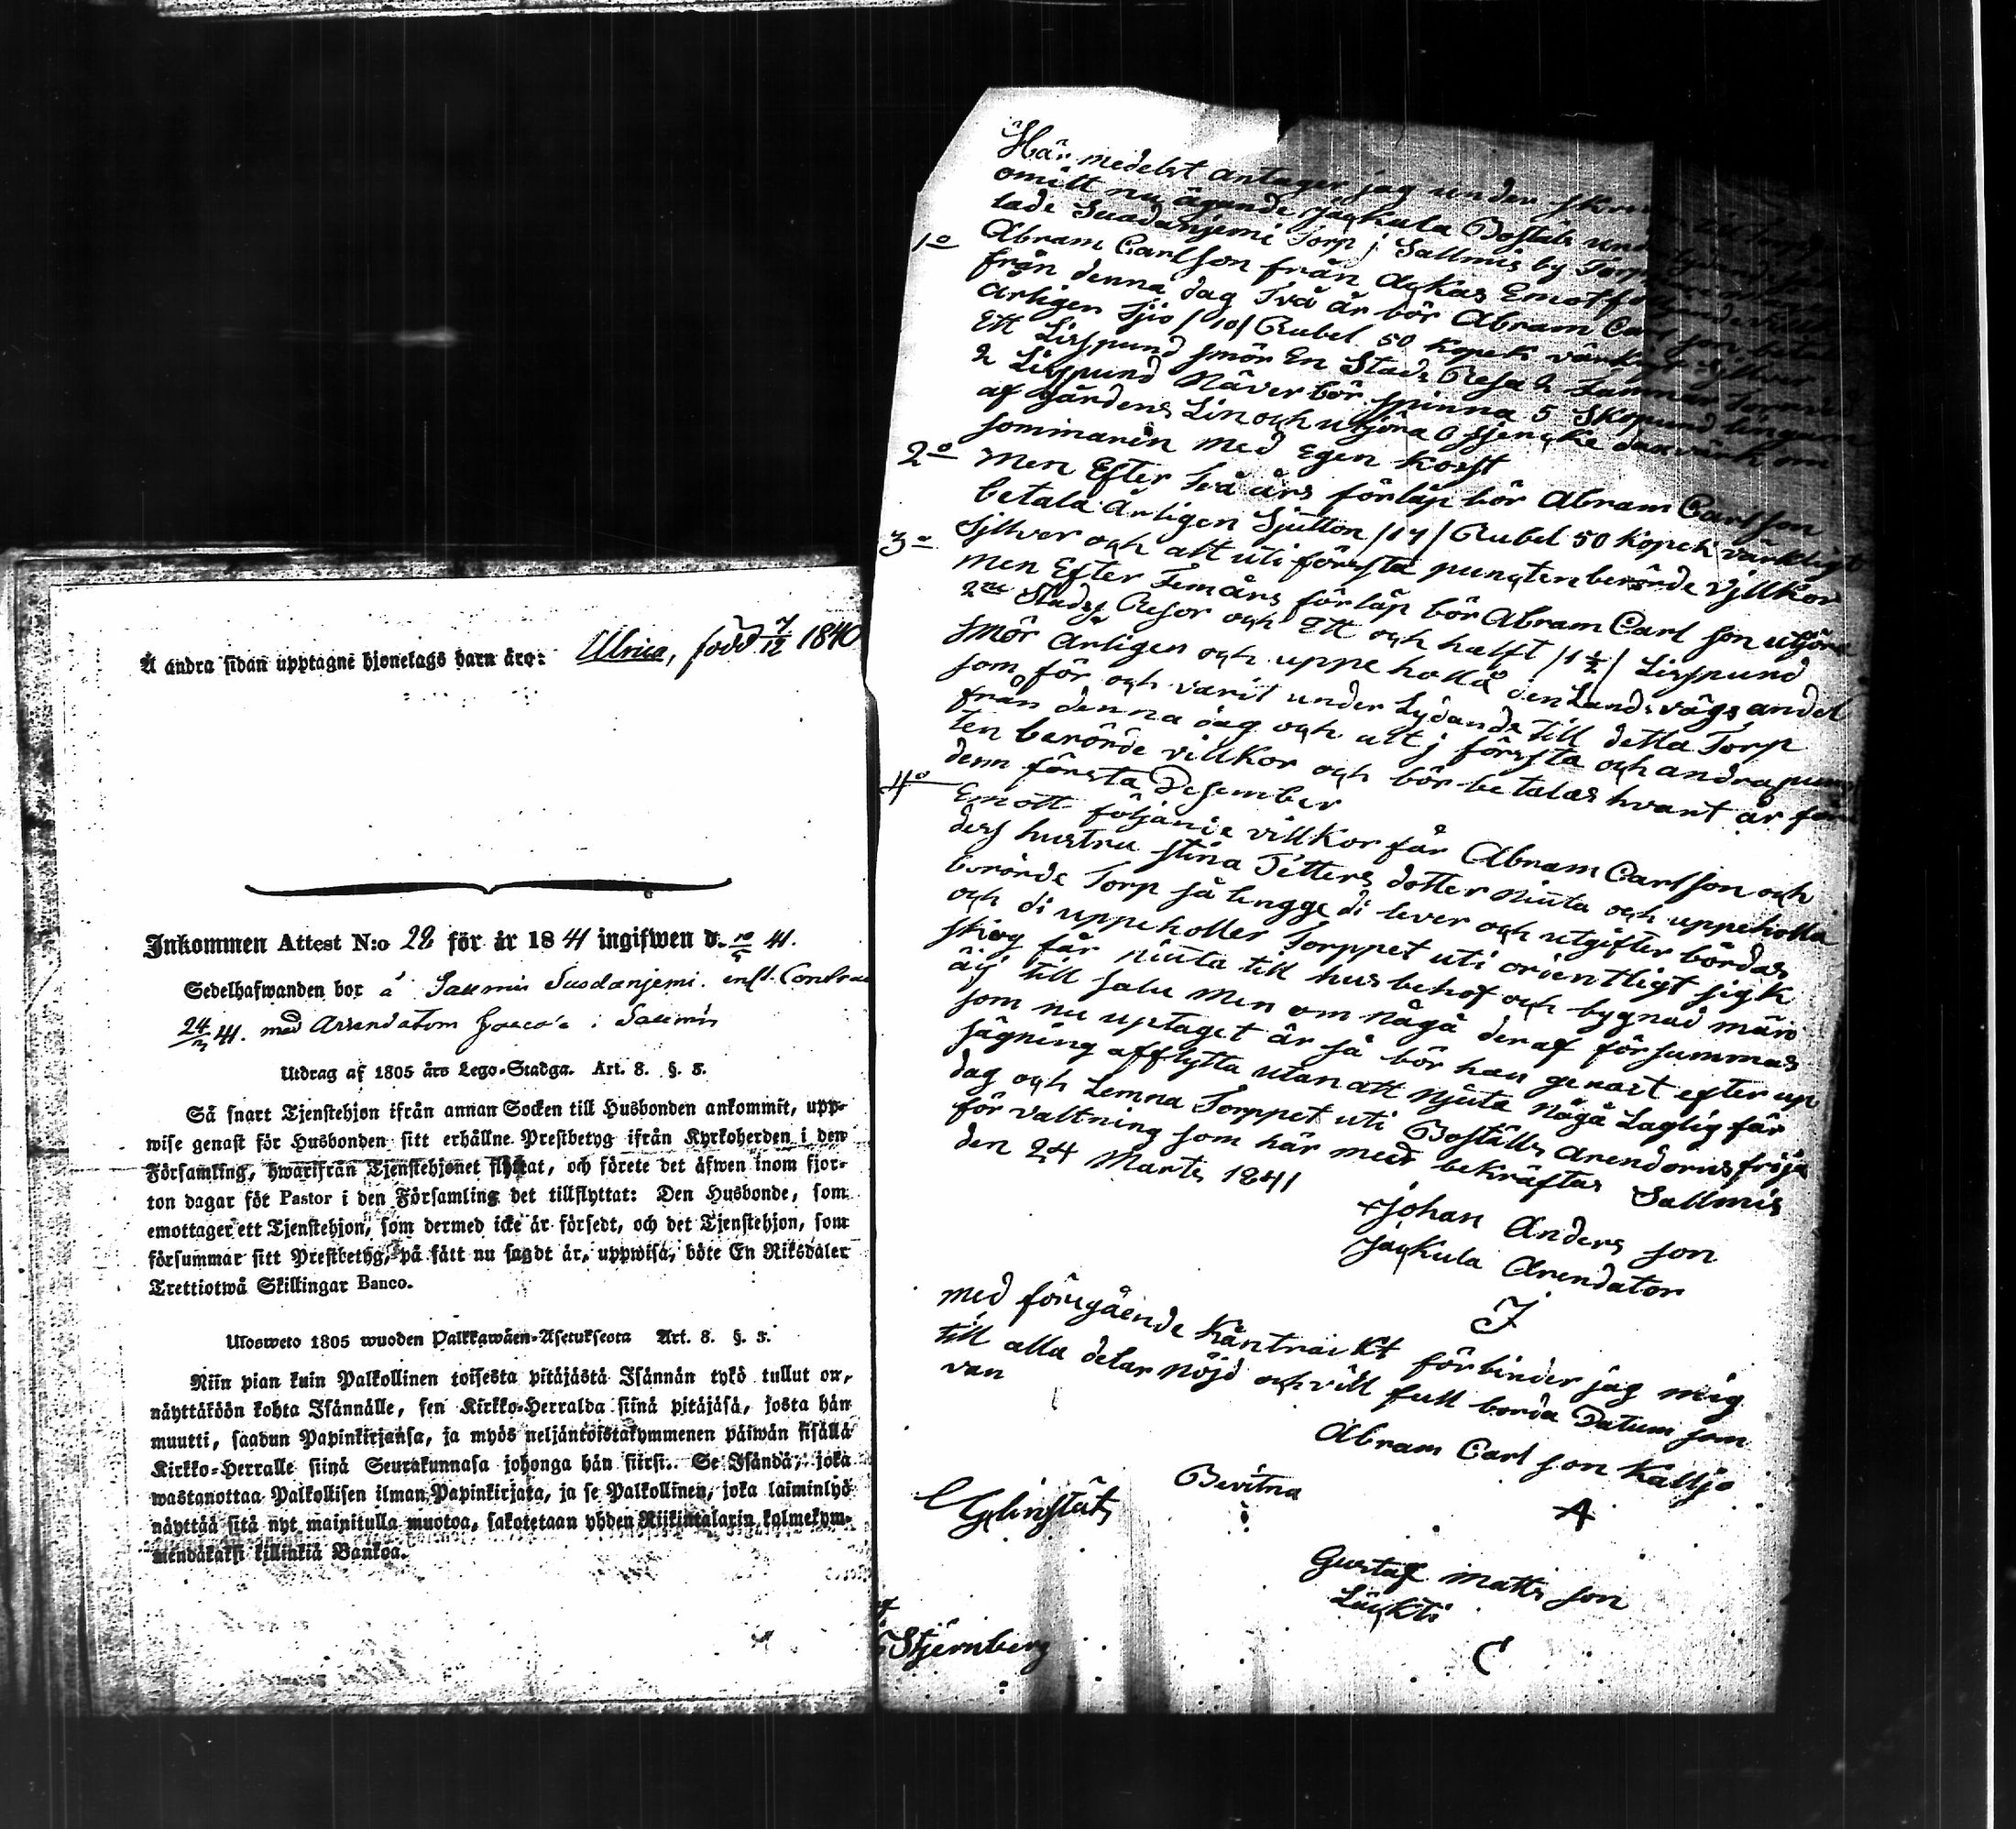 Å andra sidan upptagne hjonelags barn äro: Ulrica, född 7/12 1840
Inkommen Attest N:o 22 för år 1841 ingifwen d. 10/5 41.
Sedelhafwanden bor å Salmis Suodanjemi. enl. Contract
24/3 41. med Arrendatorn i Salmis
Utdrag af 1805 års Lego-Stadga. Art. 8. §. 5.
Så snart Tjenstehjon ifrån annan Socken till Husbonden ankommit, upp-
wise genast för Husbonden sitt erhållne Prestbetyg ifrån Kyrkoherden i den
Församling, hwarifrån Tjenstehjonet flyttat, och förete det äfwen inom fjor-
ton dagar för Pastor i den Församling det tillflyttat: Den Husbonde, som
emottager ett Tjenstehjon, som dermed icke är försedt, och det Tjenstehjon, som
försummar sitt Prestbetyg, på sätt nu sagdt är, uppwisa, böte En Riksdaler
Trettiotwå Skillingar Banco.
Ulosweto 1805 wuoden Palkkawäen-Asetuksesta Art. 8. §. 5.
Niin pian kuin Palkollinen toisesta pitäjästä Isännän tykö tullut on,
näyttäköön kohta Isännälle, sen Kirkko-Herralda siinä pitäjäsä, josta hän
muutti, saadun Papinkirjansa, ja myös neljäntoistakymmenen päiwän sisällä
Kirkko-Herralle siinä Seurakunnasa johonga hän siirsi. Se Isändä, joka
wastanottaa Palkollisen ilman Papinkirjata, ja se Palkollinen, joka laiminlyö
näyttää sitä nyt mainitulla muotoa, sakotetaan yhden Riikintalarin kolmekym-
mendäkaksi killinkiä Bankoa.
Här medelst antager jag under skreven till Torpare
omitt nu ägande jackula Boställe underlydande så kal
lade Suadanjemi Torp j Sallmis by Torpare
1o Abram Carlson från Ackas Emot följande villkor
från denna dag Två år bör Abram Carl son betala
Årligen Tjio /10/ Rubel 50 Kopek värkligt Sjllver
Ett Lisspund smör En Stads Resa 2 famnar
2 Lisspund Näver bör spinna 5 Skopund lingarn
af Gårdens Lin och utgöra 6 stjencke daxvärk om
sommaren med Egen Kosst
2o Men Efter Två års förlåp bör Abram Carlson
betala Årligen Sjutton /17/ Rubel 50 Kopek värkligt
Sjllver och allt uti förssta puncten berörde vjllkor
3o Men Efter Fem års förlåp bör Abram Carl son utgöra
2ne Stads Resor och Ett och halft /1 1/2/ Lisspund
smör Årligen och uppehollå den Landsvägs andel
som för och varit under Lydande till detta Torp
från denna dag och allt j förssta och andra punc
ten berörde villkor och bör betalas hvart år före
denn förssta Desember
4o Emott följande villkor får Abram Carlson och
dess hustru stina Petters dotter niuta och uppeholla
berörde Torp så lengge di lever och utgifter bördas
och di uppeholler Torppet uti orientligt sjck
skiog får niuta till husbehof och bygnad män
äij till salu Men om någå deraf försummas
som nu uptaget är så bör han genast efter up
sägning afflytta utan att njuta någå Laglig får
dag och Lemna Torppet uti Boställs Arendorns fröja
förvaltning som här med bekräftas Sallmis
den 24 Marts 1841
Johan Anders son
jackula Arendator
J
med föregående Kåntrackt förbinder jag mig
till alla delar nöjd och vill full borda Datum som
van
Abram Carl son Kalljo
A
Bevitna
Gustaf matts son
Läckti
C
Stjernberg